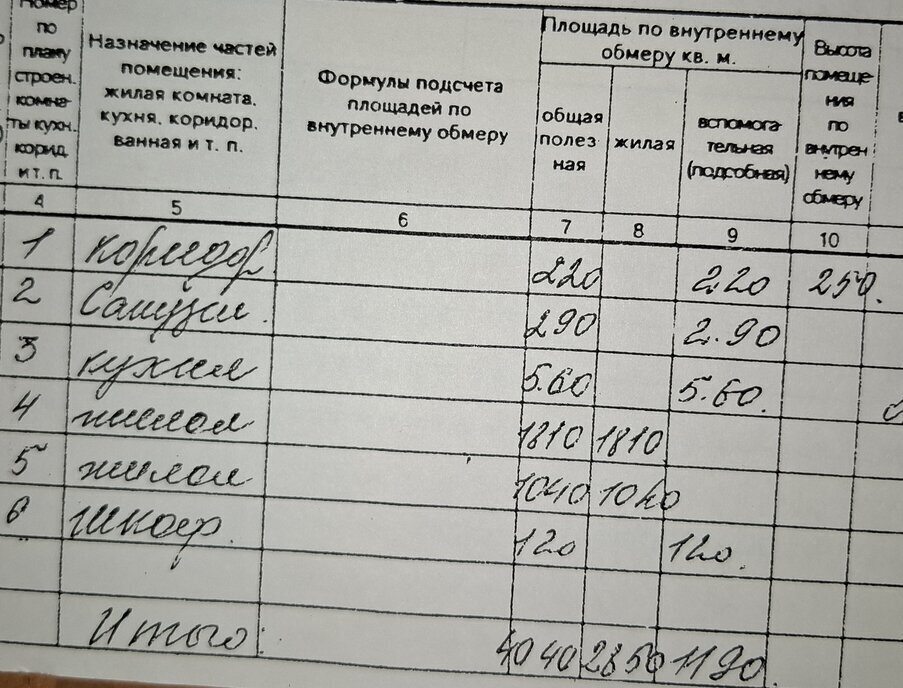 Номер по плану строен. комна- ты кухн. корид. и т. п.
Назначение частей помещения: жилая комната, кухня, коридор, ванная и т. п.
Формулы подсчета площадей по внутреннему обмеру
Площадь по внутреннему обмеру кв. м.
общая полез ная
жилая
вспомога тельная (подсобная)
Высота помеще- ния по внутрен нему обмеру
4 5 6 7 8 9 10
1 коридор 220 2.20 250.
2 Санузел. 290 2.90
3 кухня 5.60 5.60.
4 жилая 1810 1810
5 жилая 1040 1040
6 шкаф. 120 120.
Итого: 40 40 28 50 11 90.